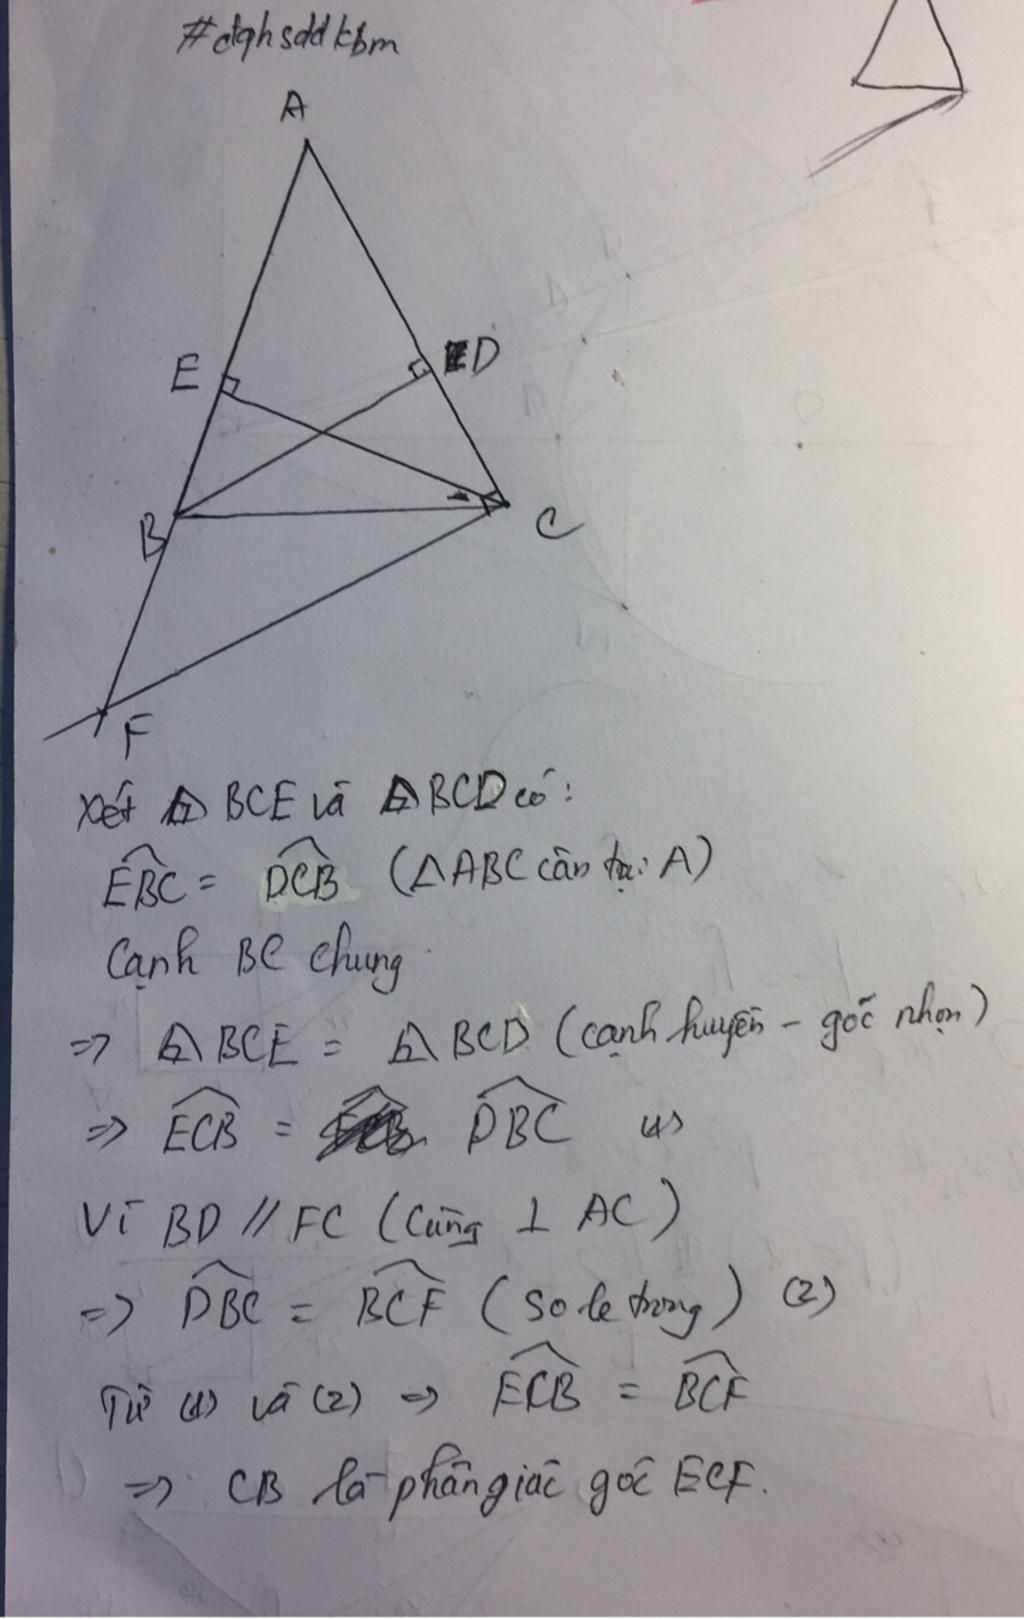 #dqhsddkbm
A
E
D
B
C
F
Xét △ BCE và △ BCD có:
EBC = DCB (△ABC cân tại A)
Cạnh BC chung
=> △ BCE = △ BCD (cạnh huyền - góc nhọn)
=> ECB = DBC (1)
Vì BD // FC (Cùng ⊥ AC)
=> DBC = BCF (so le trong) (2)
Từ (1) và (2) => ECB = BCF
=> CB là phân giác góc ECF.